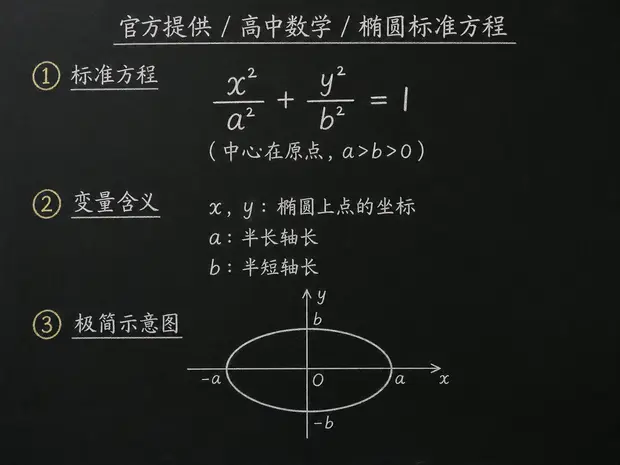 官方提供 / 高中数学 / 椭圆标准方程
① 标准方程
x²/a² + y²/b² = 1
(中心在原点, a>b>0)
② 变量含义
x, y: 椭圆上点的坐标
a: 半长轴长
b: 半短轴长
③ 极简示意图
y
b
-a
O
a
x
-b